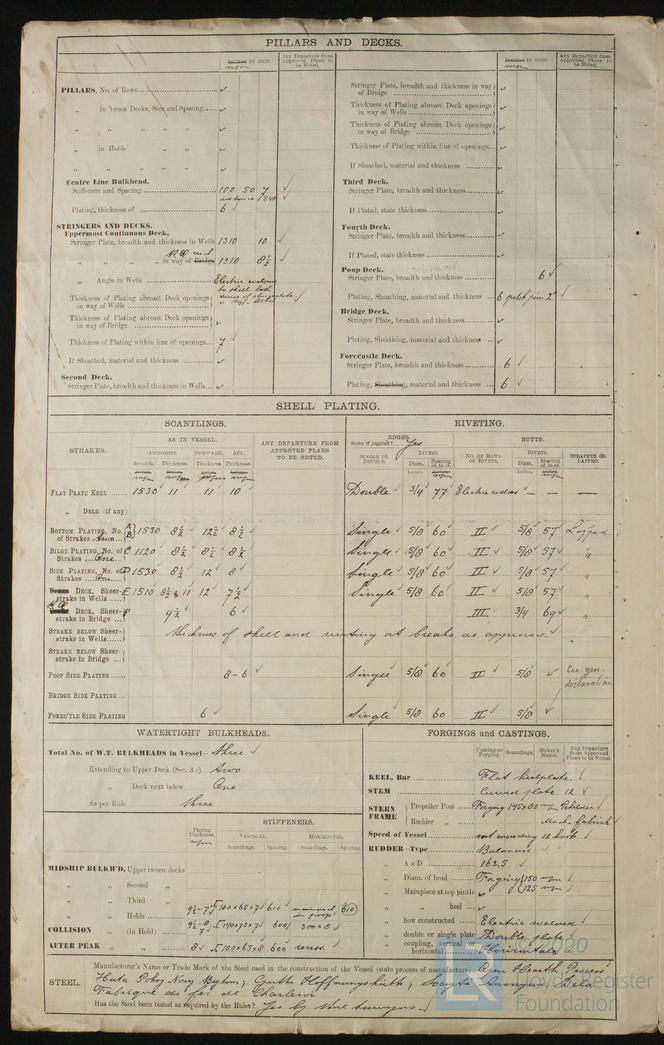 PILLARS AND DECKS.
IN SHIP.
Any Departure from Approved Plans to be Noted.
PILLARS, No. of Rows
„ in 'tween Decks, Size and Spacing
„ „ „ „ „
„ in Holds „ „
„ „ „ „
Centre Line Bulkhead.
Stiffeners and Spacing 100 50 7
distance 1540
Plating, thickness of 6
STRINGERS AND DECKS.
Uppermost Continuous Deck.
Stringer Plate, breadth and thickness in Wells 1310 10
„ „ „ „ in way of Bridge 1310 8½
„ Angle in Wells Electric welded
to shell both
Thickness of Plating abreast Deck openings in way of Wells
Thickness of Plating abreast Deck openings in way of Bridge
Thickness of Plating within line of openings 7
If Sheathed, material and thickness
Second Deck.
Stringer Plate, breadth and thickness in Wells
IN SHIP.
Any Departure from Approved Plans to be Noted.
Stringer Plate, breadth and thickness in way of Bridge
Thickness of Plating abreast Deck openings in way of Wells
Thickness of Plating abreast Deck openings in way of Bridge
Thickness of Plating within line of openings
If Sheathed, material and thickness
Third Deck.
Stringer Plate, breadth and thickness
If Plated, state thickness
Fourth Deck.
Stringer Plate, breadth and thickness
If Plated, state thickness
Poop Deck.
Stringer Plate, breadth and thickness 6
Plating, Sheathing, material and thickness 6 pitch pine 2"
Bridge Deck.
Stringer Plate, breadth and thickness
Plating, Sheathing, material and thickness
Forecastle Deck.
Stringer Plate, breadth and thickness 6
Plating, Sheathing, material and thickness 6
SHELL PLATING.
SCANTLINGS. RIVETING.
STRAKES.
AS IN VESSEL.
AMIDSHIPS. FORWARD. AFT.
Breadth. Thickness. Thickness. Thickness.
ANY DEPARTURE FROM APPROVED PLANS TO BE NOTED.
EDGES. Yes
State if joggled?
SINGLE OR DOUBLE.
RIVETS.
Diam. Spacing cr. to cr.
BUTTS.
No. OF ROWS OF RIVETS.
RIVETS.
Diam. Spacing cr. to cr.
STRAPPED OR LAPPED.
FLAT PLATE KEEL 1530 11 11 10 Double 3/4 77 Electric welded — — —
„ DBLG. (if any)
BOTTOM PLATING, No. of Strakes Two A B 1530 8½ 12½ 8½ Single 5/8 60 II 5/8 57 Lapped
BILGE PLATING, No. of Strakes One C 1120 8½ 8½ 8½ Single 5/8 60 II 5/8 57 „
SIDE PLATING, No. of Strakes One D 1530 8½ 12 8 Single 5/8 60 II 5/8 57 „
DECK, Sheerstrake in Wells E 1510 8½ & 11 12 7½ Single 5/8 60 II 5/8 57 „
DECK, Sheerstrake in Bridge F 9½ 6 III 3/4 69 „
STRAKE BELOW Sheerstrake in Wells Thickness of shell and riveting at breaks as approved.
STRAKE BELOW Sheerstrake in Bridge
POOP SIDE PLATING 8-6 Single 5/8 60 II 5/8 See gen. declaration
BRIDGE SIDE PLATING
FOREC'TLE SIDE PLATING 6 Single 5/8 60 II 5/8
WATERTIGHT BULKHEADS.
Total No. of W.T. BULKHEADS in Vessel— Three
Extending to Upper Deck (Sec. 3 c) Two
„ Deck next below One
As per Rule Three
STIFFENERS.
Plating Thickness.
VERTICAL. HORIZONTAL.
Scantlings. Spacing. Scantlings. Spacing.
MIDSHIP BULKH'D, Upper tween decks
„ „ Second „
„ „ Third „
„ „ Holds 9½-7 100x65x7 610 610
COLLISION „ (in Hold) 9½-8 7 140x75x7 600 300x8
AFTER PEAK „ „ 8 100x65x8 600 recess.
FORGINGS and CASTINGS.
Casting or Forging. Scantlings. Maker's Name. Any Departure from Approved Plans to be Noted.
KEEL, Bar Flat keelplate.
STEM Curved plate 12
STERN FRAME
Propeller Post Forging 145x80
Rudder „
Speed of Vessel not exceeding 12 knots
RUDDER—Type Balanced
„ A x D 163.5
„ Diam. of head Forging 150
„ Mainpiece at top pintle 125
„ „ heel
„ how constructed Electric welded
„ double or single plate Double plate
„ coupling, vertical or horizontal Horizontal
STEEL. Manufacturer's Name or Trade Mark of the Steel used in the construction of the Vessel (state process of manufacture) Open Hearth Process
Huta Pokoj Nowy Bytom; Gutte Hoffnungshutte;
Fabrique de fer de Charleroi
Has the Steel been tested as required by the Rules? Yes by the Surveyors.
© 2020
Lloyd's Register
Foundation
LR